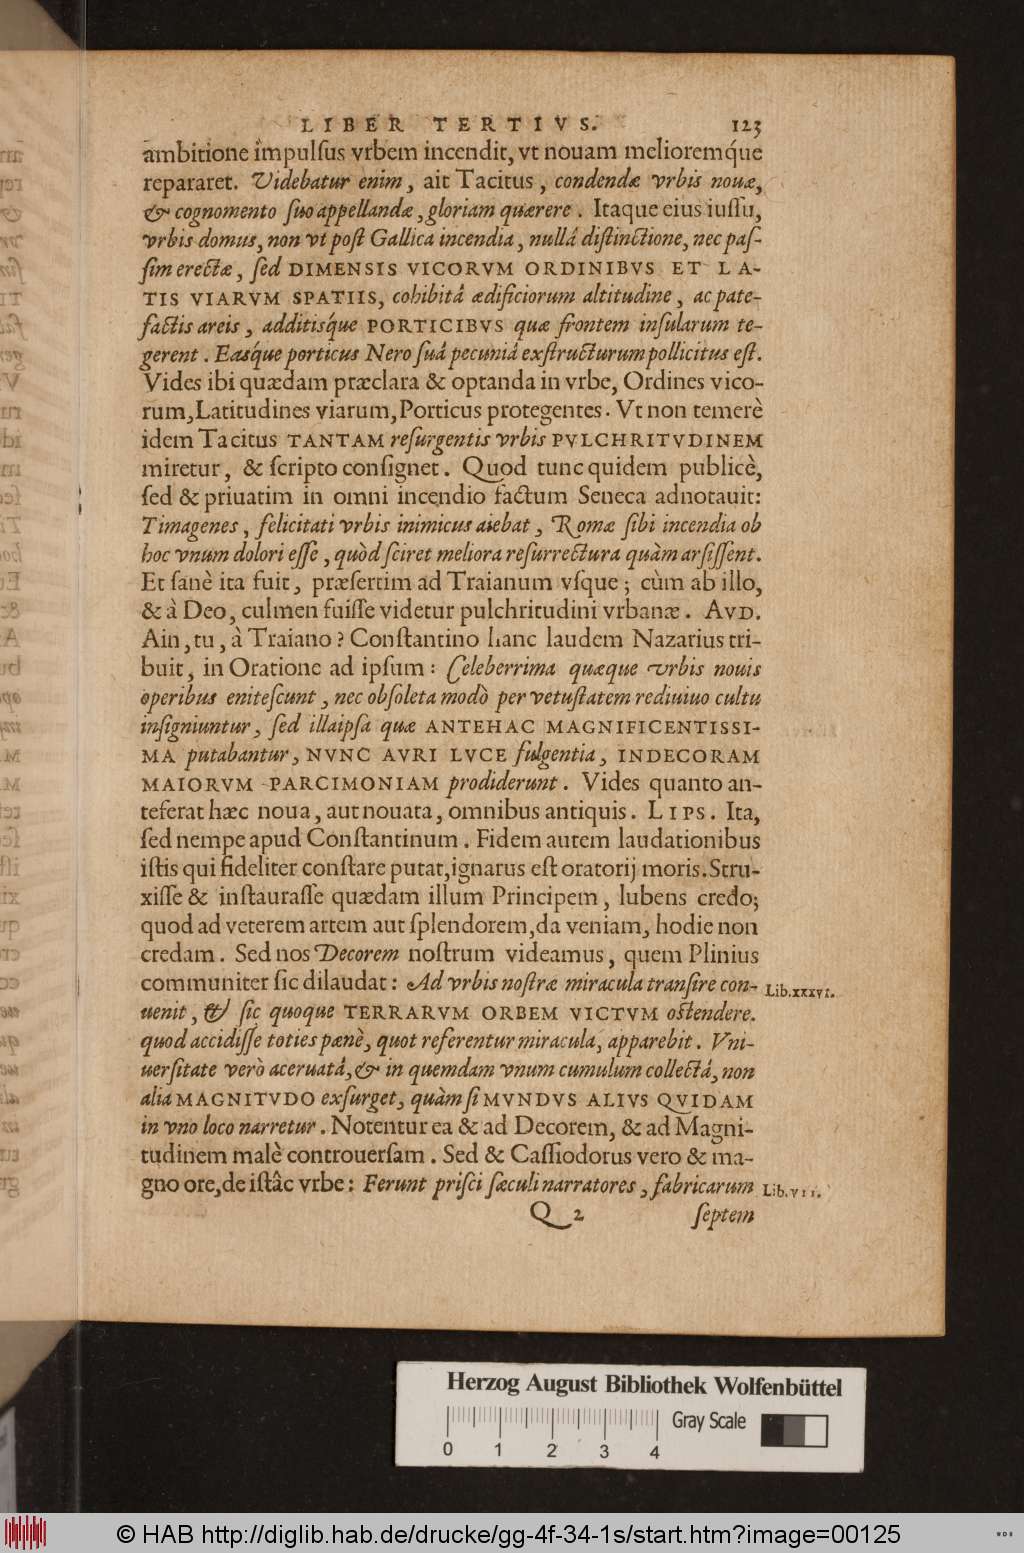 LIBER TERTIVS. 123
ambitione impulſus vrbem incendit, vt nouam melioremq́ue
repararet. Videbatur enim, ait Tacitus, condendæ vrbis nouæ,
& cognomento ſuo appellandæ, gloriam quærere. Itaque eius iuſſu,
vrbis domus, non vt poſt Gallica incendia, nullâ diſtinctione, nec paſ-
ſim erectæ, ſed DIMENSIS VICORVM ORDINIBVS ET LA-
TIS VIARVM SPATIIS, cohibitâ ædificiorum altitudine, ac pate-
factis areis, additisq́ue PORTICIBVS quæ frontem inſularum te-
gerent. Easq́ue porticus Nero ſuâ pecuniâ exſtructurum pollicitus eſt.
Vides ibi quædam præclara & optanda in vrbe, Ordines vico-
rum, Latitudines viarum, Porticus protegentes. Vt non temerè
idem Tacitus TANTAM reſurgentis vrbis PVLCHRITVDINEM
miretur, & ſcripto conſignet. Quod tunc quidem publicè,
ſed & priuatim in omni incendio factum Seneca adnotauit:
Timagenes, felicitati vrbis inimicus aiebat, Romæ ſibi incendia ob
hoc vnum dolori eſſe, quòd ſciret meliora reſurrectura quàm arſiſſent.
Et ſanè ita fuit, præſertim ad Traianum vſque; cùm ab illo,
& à Deo, culmen fuiſſe videtur pulchritudini vrbanæ. AVD.
Ain, tu, à Traiano? Conſtantino hanc laudem Nazarius tri-
buit, in Oratione ad ipſum: Celeberrima quæque vrbis nouis
operibus eniteſcunt, nec obſoleta modò per vetuſtatem rediuiuo cultu
inſigniuntur, ſed illa ipſa quæ ANTEHAC MAGNIFICENTISSI-
MA putabantur, NVNC AVRI LVCE fulgentia, INDECORAM
MAIORVM PARCIMONIAM prodiderunt. Vides quanto an-
teferat hæc noua, aut nouata, omnibus antiquis. LIPS. Ita,
ſed nempe apud Conſtantinum. Fidem autem laudationibus
iſtis qui fideliter conſtare putat, ignarus eſt oratorij moris. Stru-
xiſſe & inſtauraſſe quædam illum Principem, lubens credo;
quod ad veterem artem aut ſplendorem, da veniam, hodie non
credam. Sed nos Decorem noſtrum videamus, quem Plinius
communiter ſic dilaudat: Ad vrbis noſtræ miracula tranſire con- Lib.xxxvı.
uenit, & ſic quoque TERRARVM ORBEM VICTVM oſtendere.
quod accidiſſe toties pænè, quot referentur miracula, apparebit. Vni-
uerſitate verò aceruatâ, & in quemdam vnum cumulum collectâ, non
alia MAGNITVDO exſurget, quàm ſi MVNDVS ALIVS QVIDAM
in vno loco narretur. Notentur ea & ad Decorem, & ad Magni-
tudinem malè controuerſam. Sed & Caſſiodorus vero & ma-
gno ore, de iſtâc vrbe: Ferunt priſci ſæculi narratores, fabricarum Lib.vıı.
Q 2 ſeptem
Herzog August Bibliothek Wolfenbüttel
0 1 2 3 4 Gray Scale
© HAB http://diglib.hab.de/drucke/gg-4f-34-1s/start.htm?image=00125